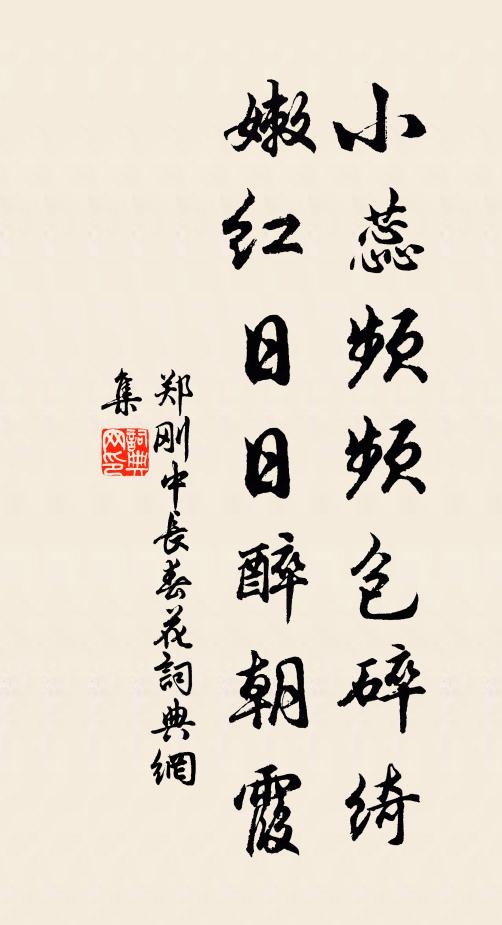 小蕊频频包碎绮
嫩红日日醉朝霞
郑刚中長春花詞典網
集
詞典
网印